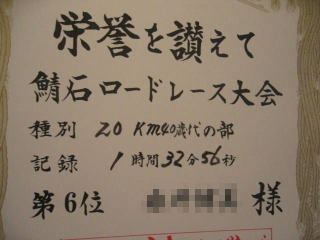 栄誉を讃えて
鯖石ロードレース大会
種別 20 KM40歳代の部
記録 1時間32分56秒
第6位 様